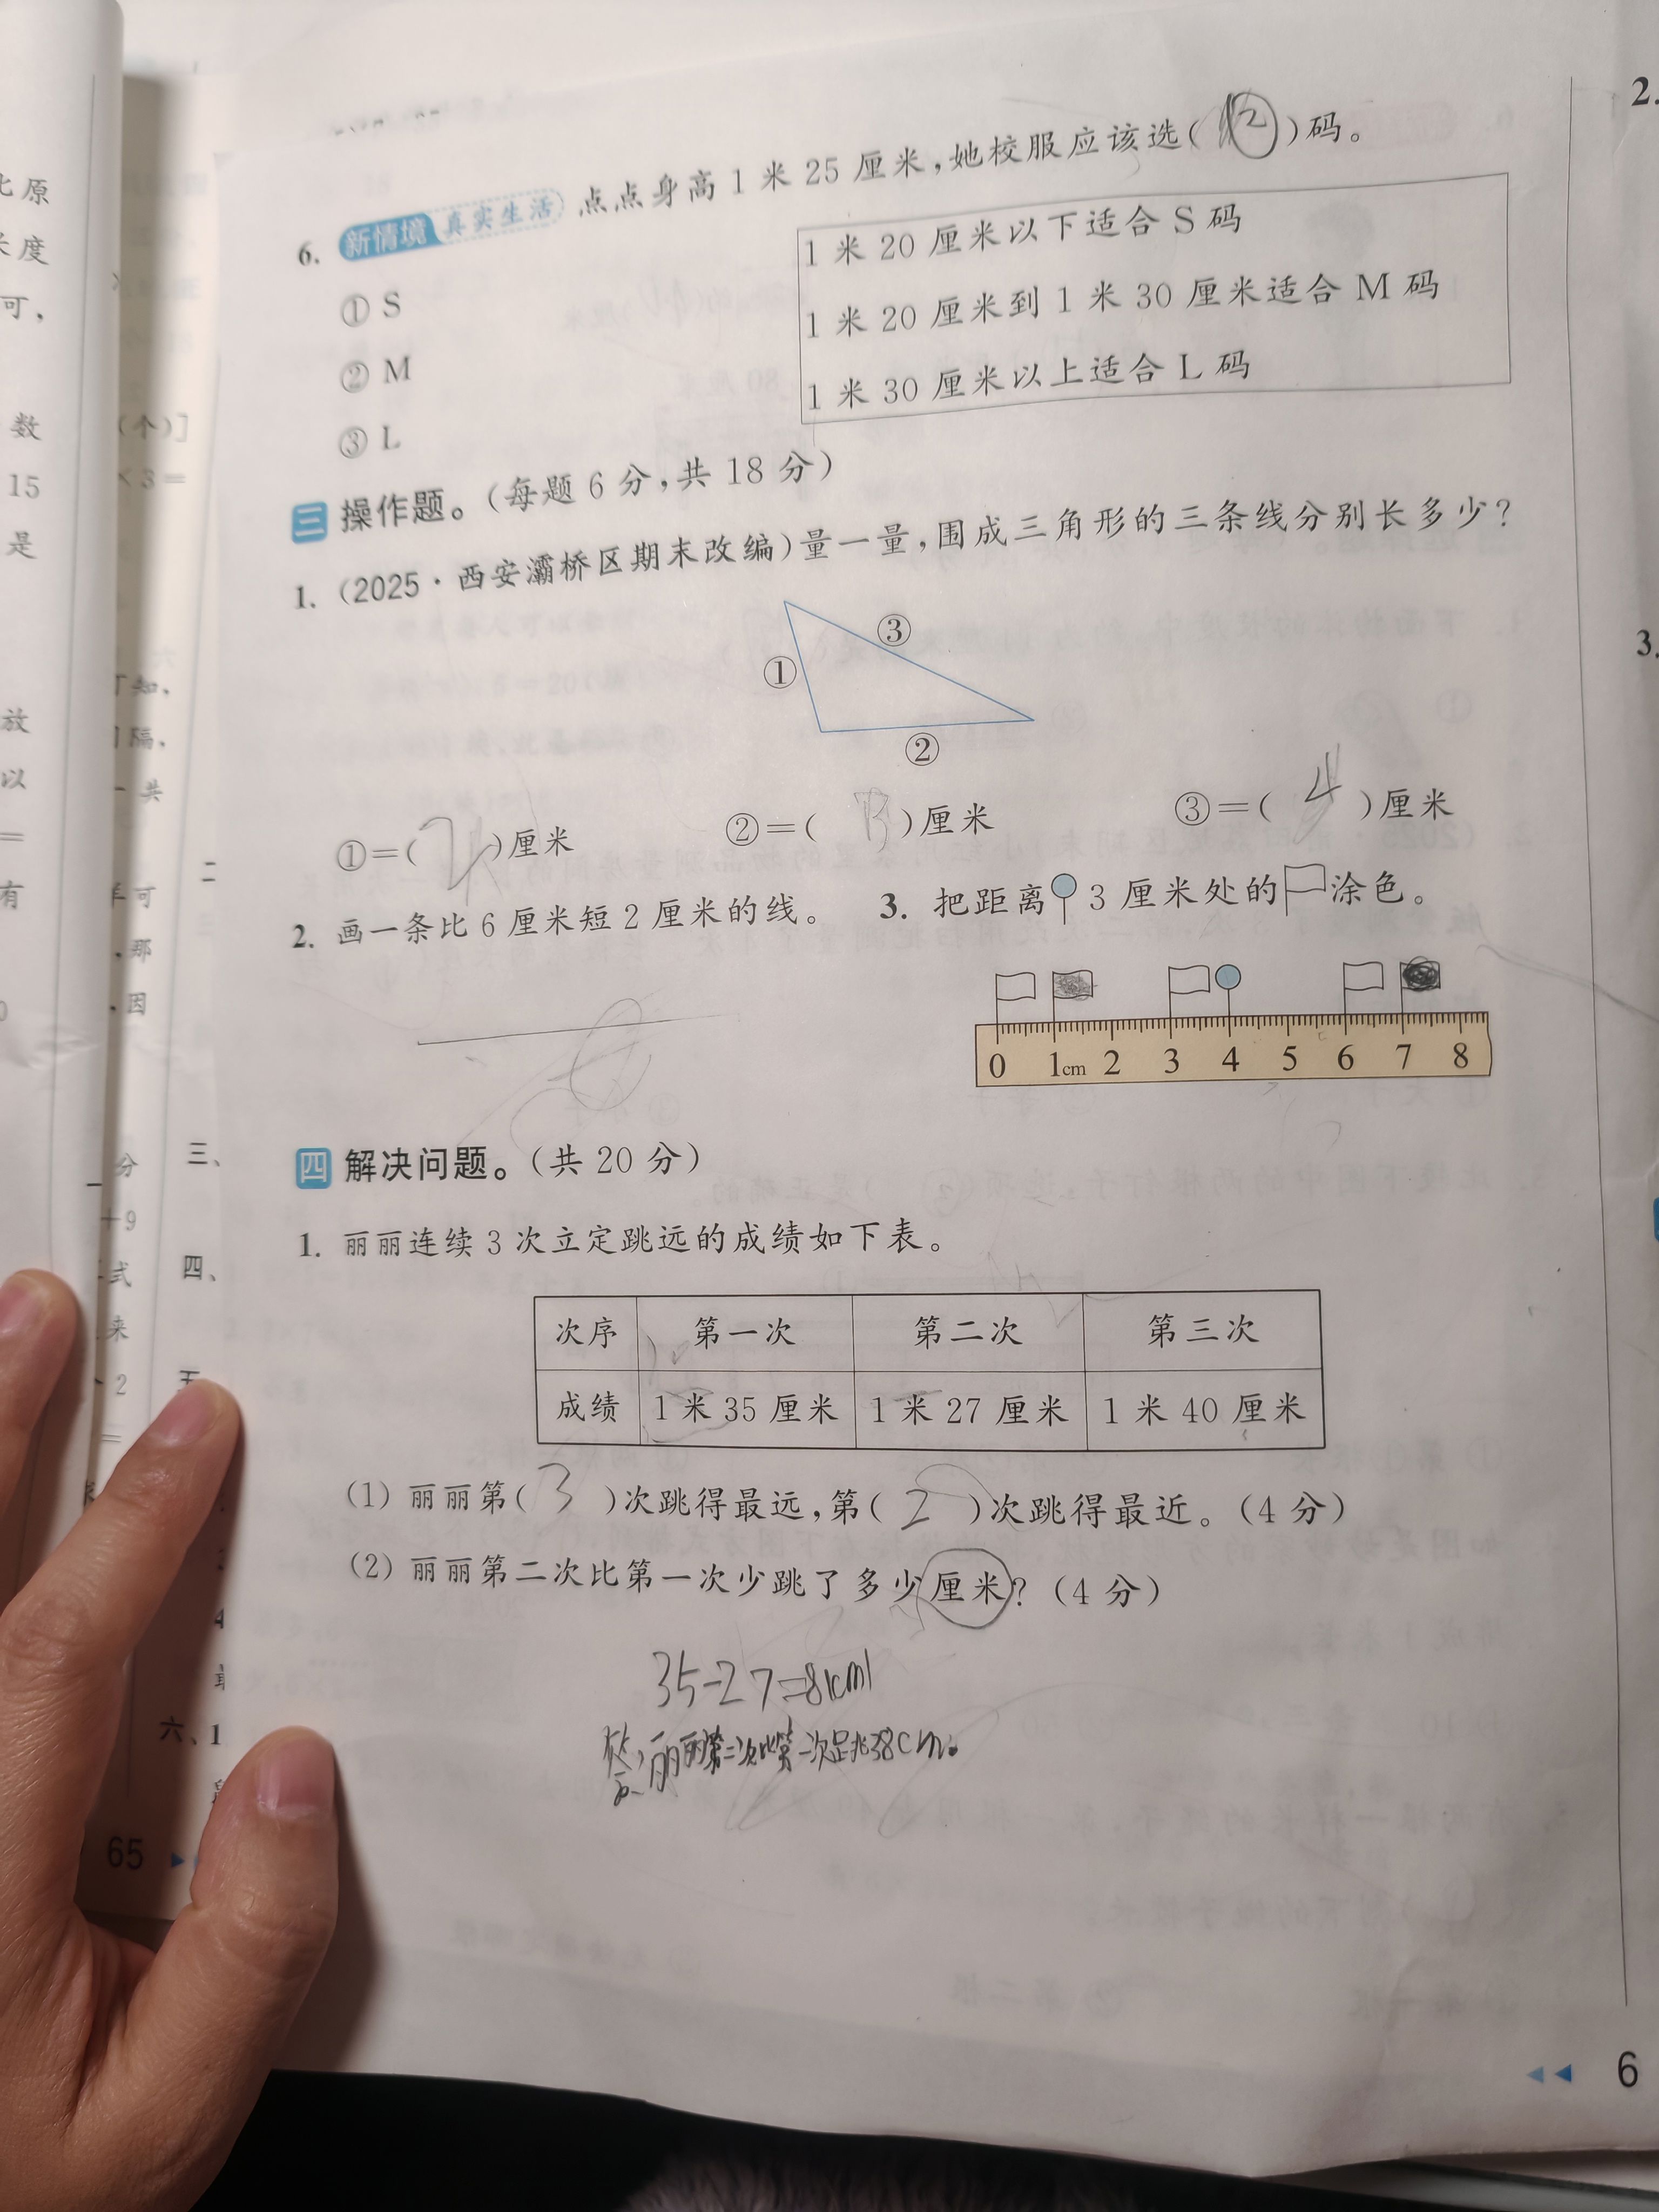 6. 新情境 真实生活 点点身高1米25厘米,她校服应该选(②)码。
① S
② M
③ L
1米20厘米以下适合S码
1米20厘米到1米30厘米适合M码
1米30厘米以上适合L码
三 操作题。(每题6分,共18分)
1. (2025·西安灞桥区期末改编)量一量,围成三角形的三条线分别长多少?
①
③
②
①=(2)厘米 ②=(3)厘米 ③=(4)厘米
2. 画一条比6厘米短2厘米的线。
3. 把距离 3厘米处的 涂色。
0 1cm 2 3 4 5 6 7 8
四 解决问题。(共20分)
1. 丽丽连续3次立定跳远的成绩如下表。
次序 第一次 第二次 第三次
成绩 1米35厘米 1米27厘米 1米40厘米
(1) 丽丽第(3)次跳得最远,第(2)次跳得最近。(4分)
(2) 丽丽第二次比第一次少跳了多少厘米?(4分)
35-27=8(cm)
答:丽丽第二次比第一次
比原
长度
可,
数
15
是
放
以
=
有
(个)]
×3=
可知,
隔,
共
可
那
因
分
+9
式
来
2
=
二
三、
四、
五
4
六、1
65
2.
3.
6